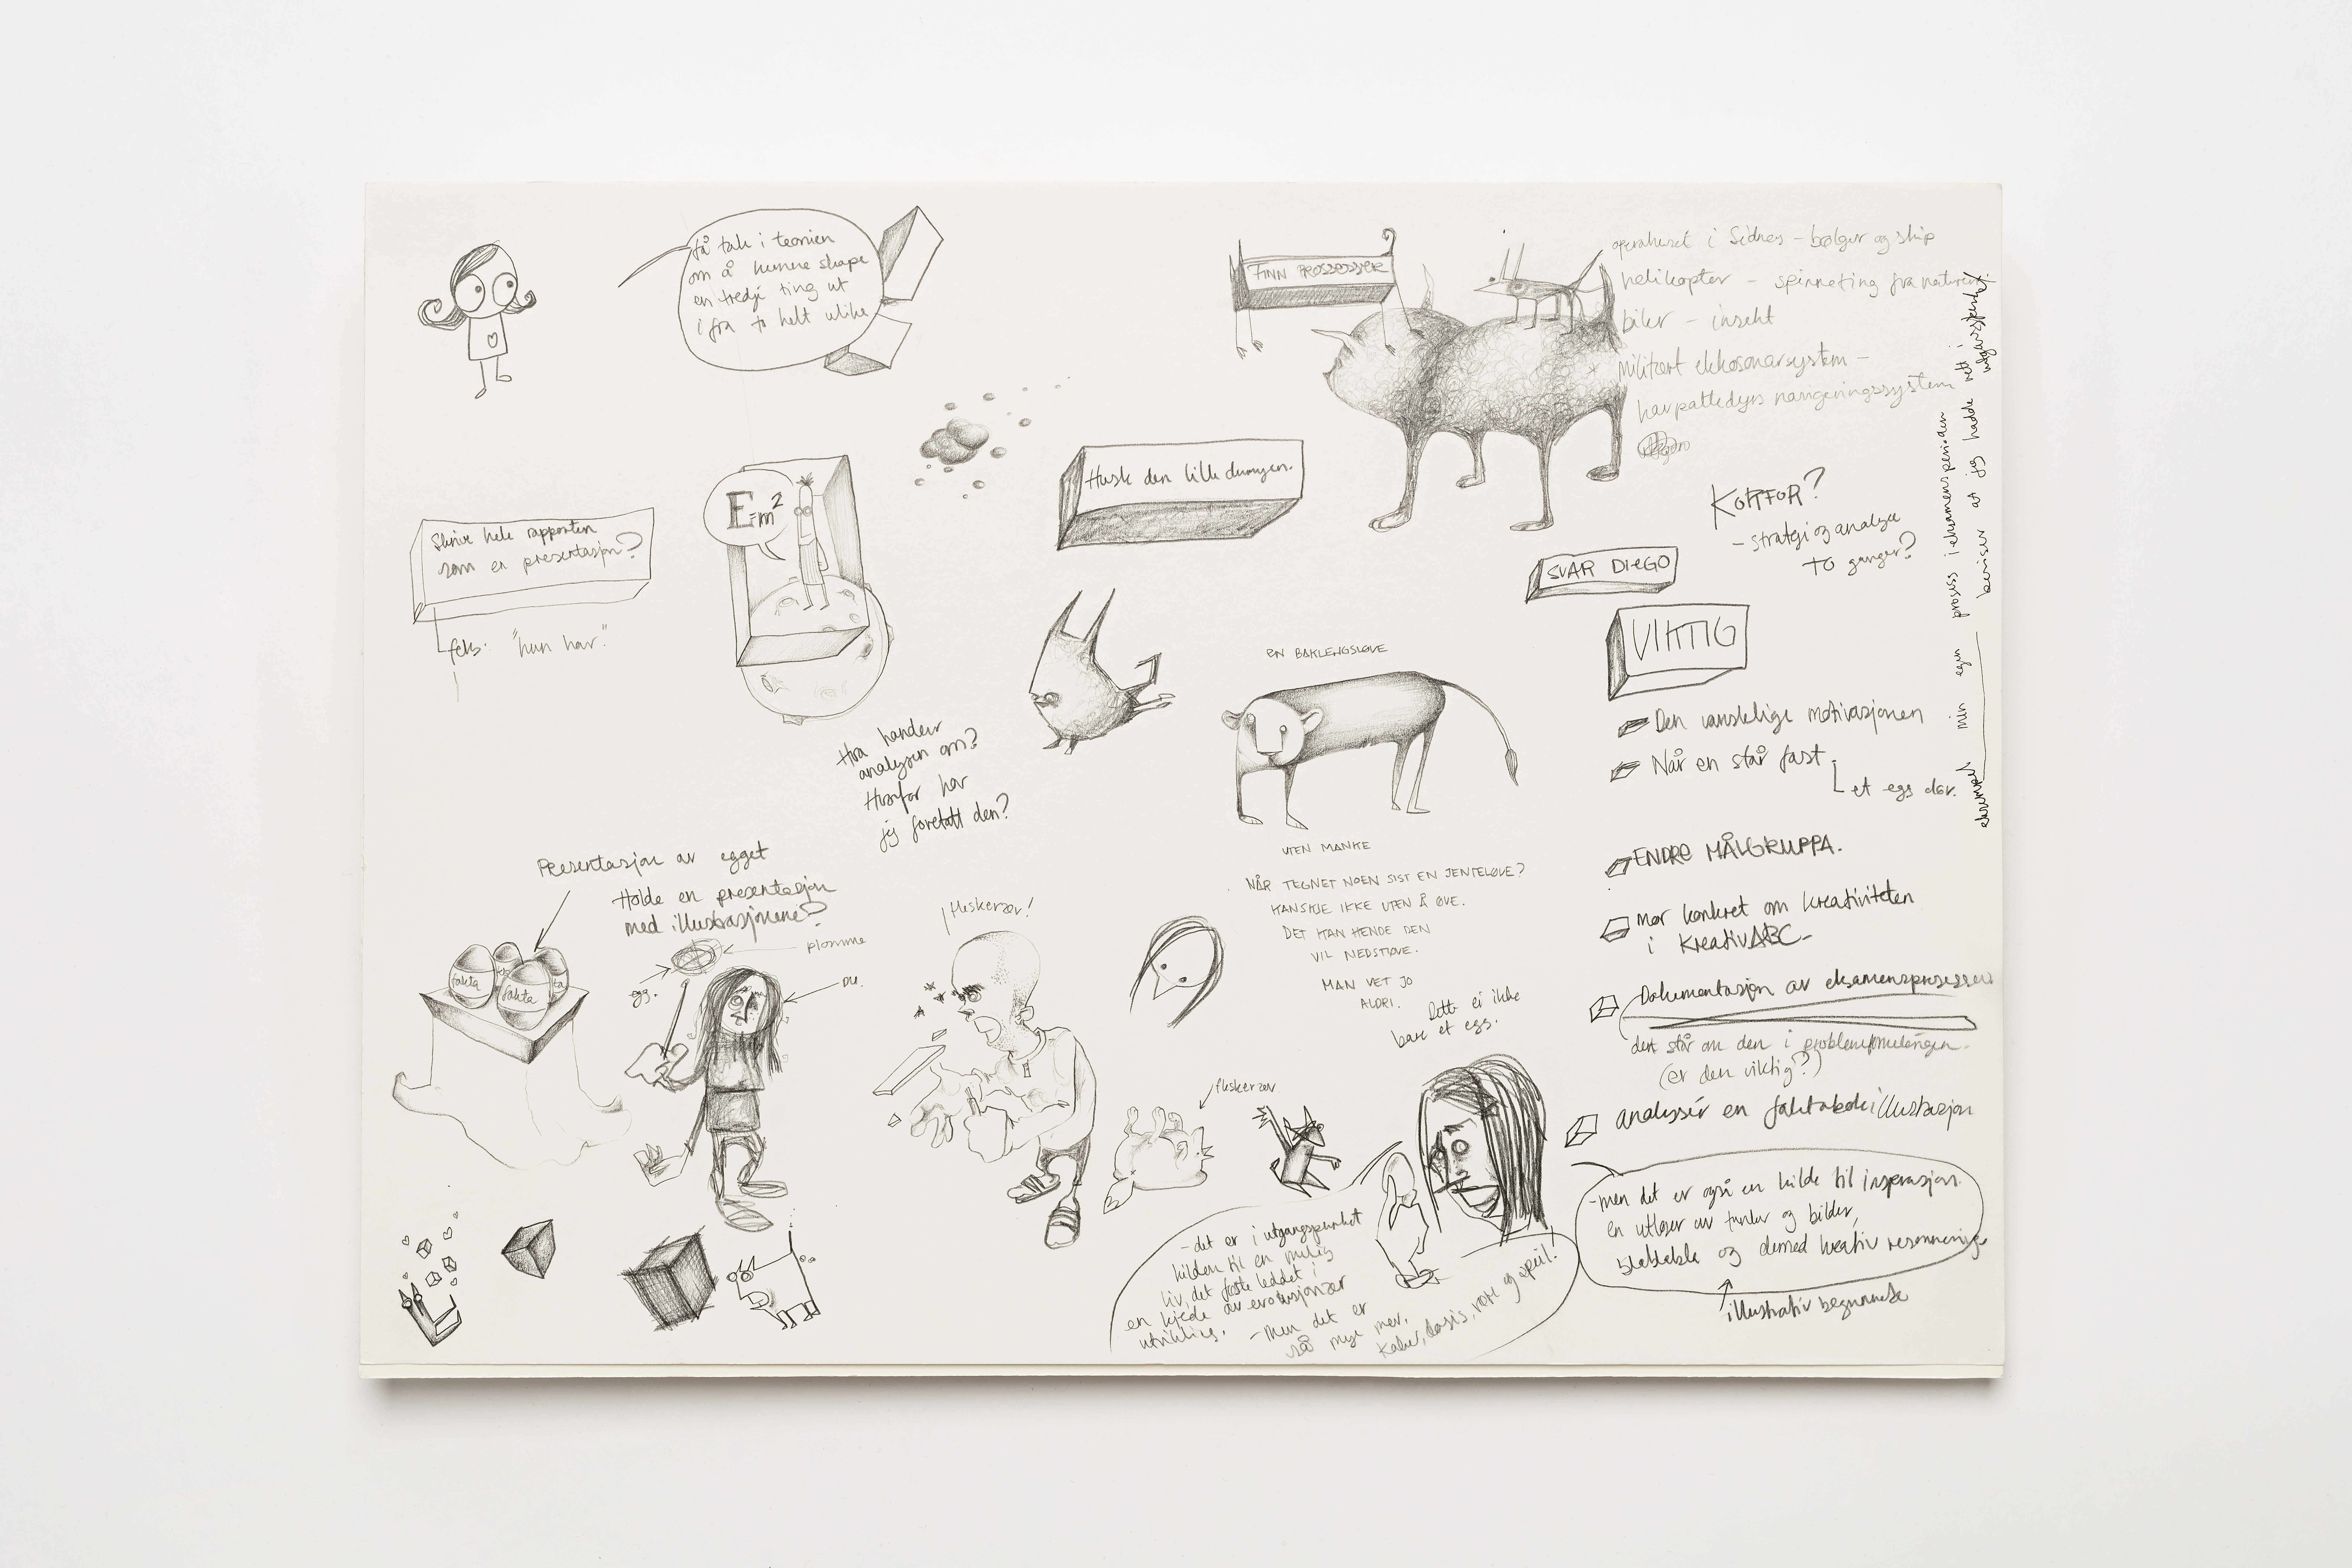 få tak i teorien
om å kunne skape
en tredje ting ut
i fra to helt ulike
FINN PROSSESSER
operahuset i Sidney – bølger og skip
helikopter – spinneting fra naturen
biler – insekt
militært ekkosonarsystem –
havpattedyrs navigeringssystem
Husk den lille dumgen.
Skrive hele rapporten
som en presentasjon?
feks: "hun har"
E=m²
KORFOR?
– strategi og analyse
TO ganger?
SVAR DIEGO
VIKTIG
Den vanskelige motivasjonen
Når en står fast
et egg dør.
ENDRE MÅLGRUPPA.
mer konkret om kreativiteten
i KreativABC
Dokumentasjon av eksamensprosessen
det står om den i problemformuleringen.
(er den viktig?)
analysér en faktabokillustrasjon
eksempel min egen prosess i eksamensperioden
beviser at jeg hadde rett i
utgangspunktet
EN BAKLENGSLØVE
UTEN MANKE
NÅR TEGNET NOEN SIST EN JENTELØVE?
KANSKJE IKKE UTEN Å ØVE.
DET KAN HENDE DEN
VIL NEDSTØVE.
MAN VET JO
ALDRI.
Hva handler
analysen om?
Hvorfor har
jeg foretatt den?
Presentasjon av egget
Holde en presentasjon
med illustrasjonene?
plomme
egg.
DU.
fakta
fakta
fleskerær!
fleskerær
Dette er ikke
bare et egg.
– det er i utgangspunktet
kilden til en mulig
liv, det første leddet i
en kjede av evolusjonær
utvikling.
– Men det er
så mye mer.
og speil!
– men det er også en kilde til inspirasjon.
en utløser av tanker og bilder,
blablabla og dermed kreativ resonnering
illustrativ begynnelse